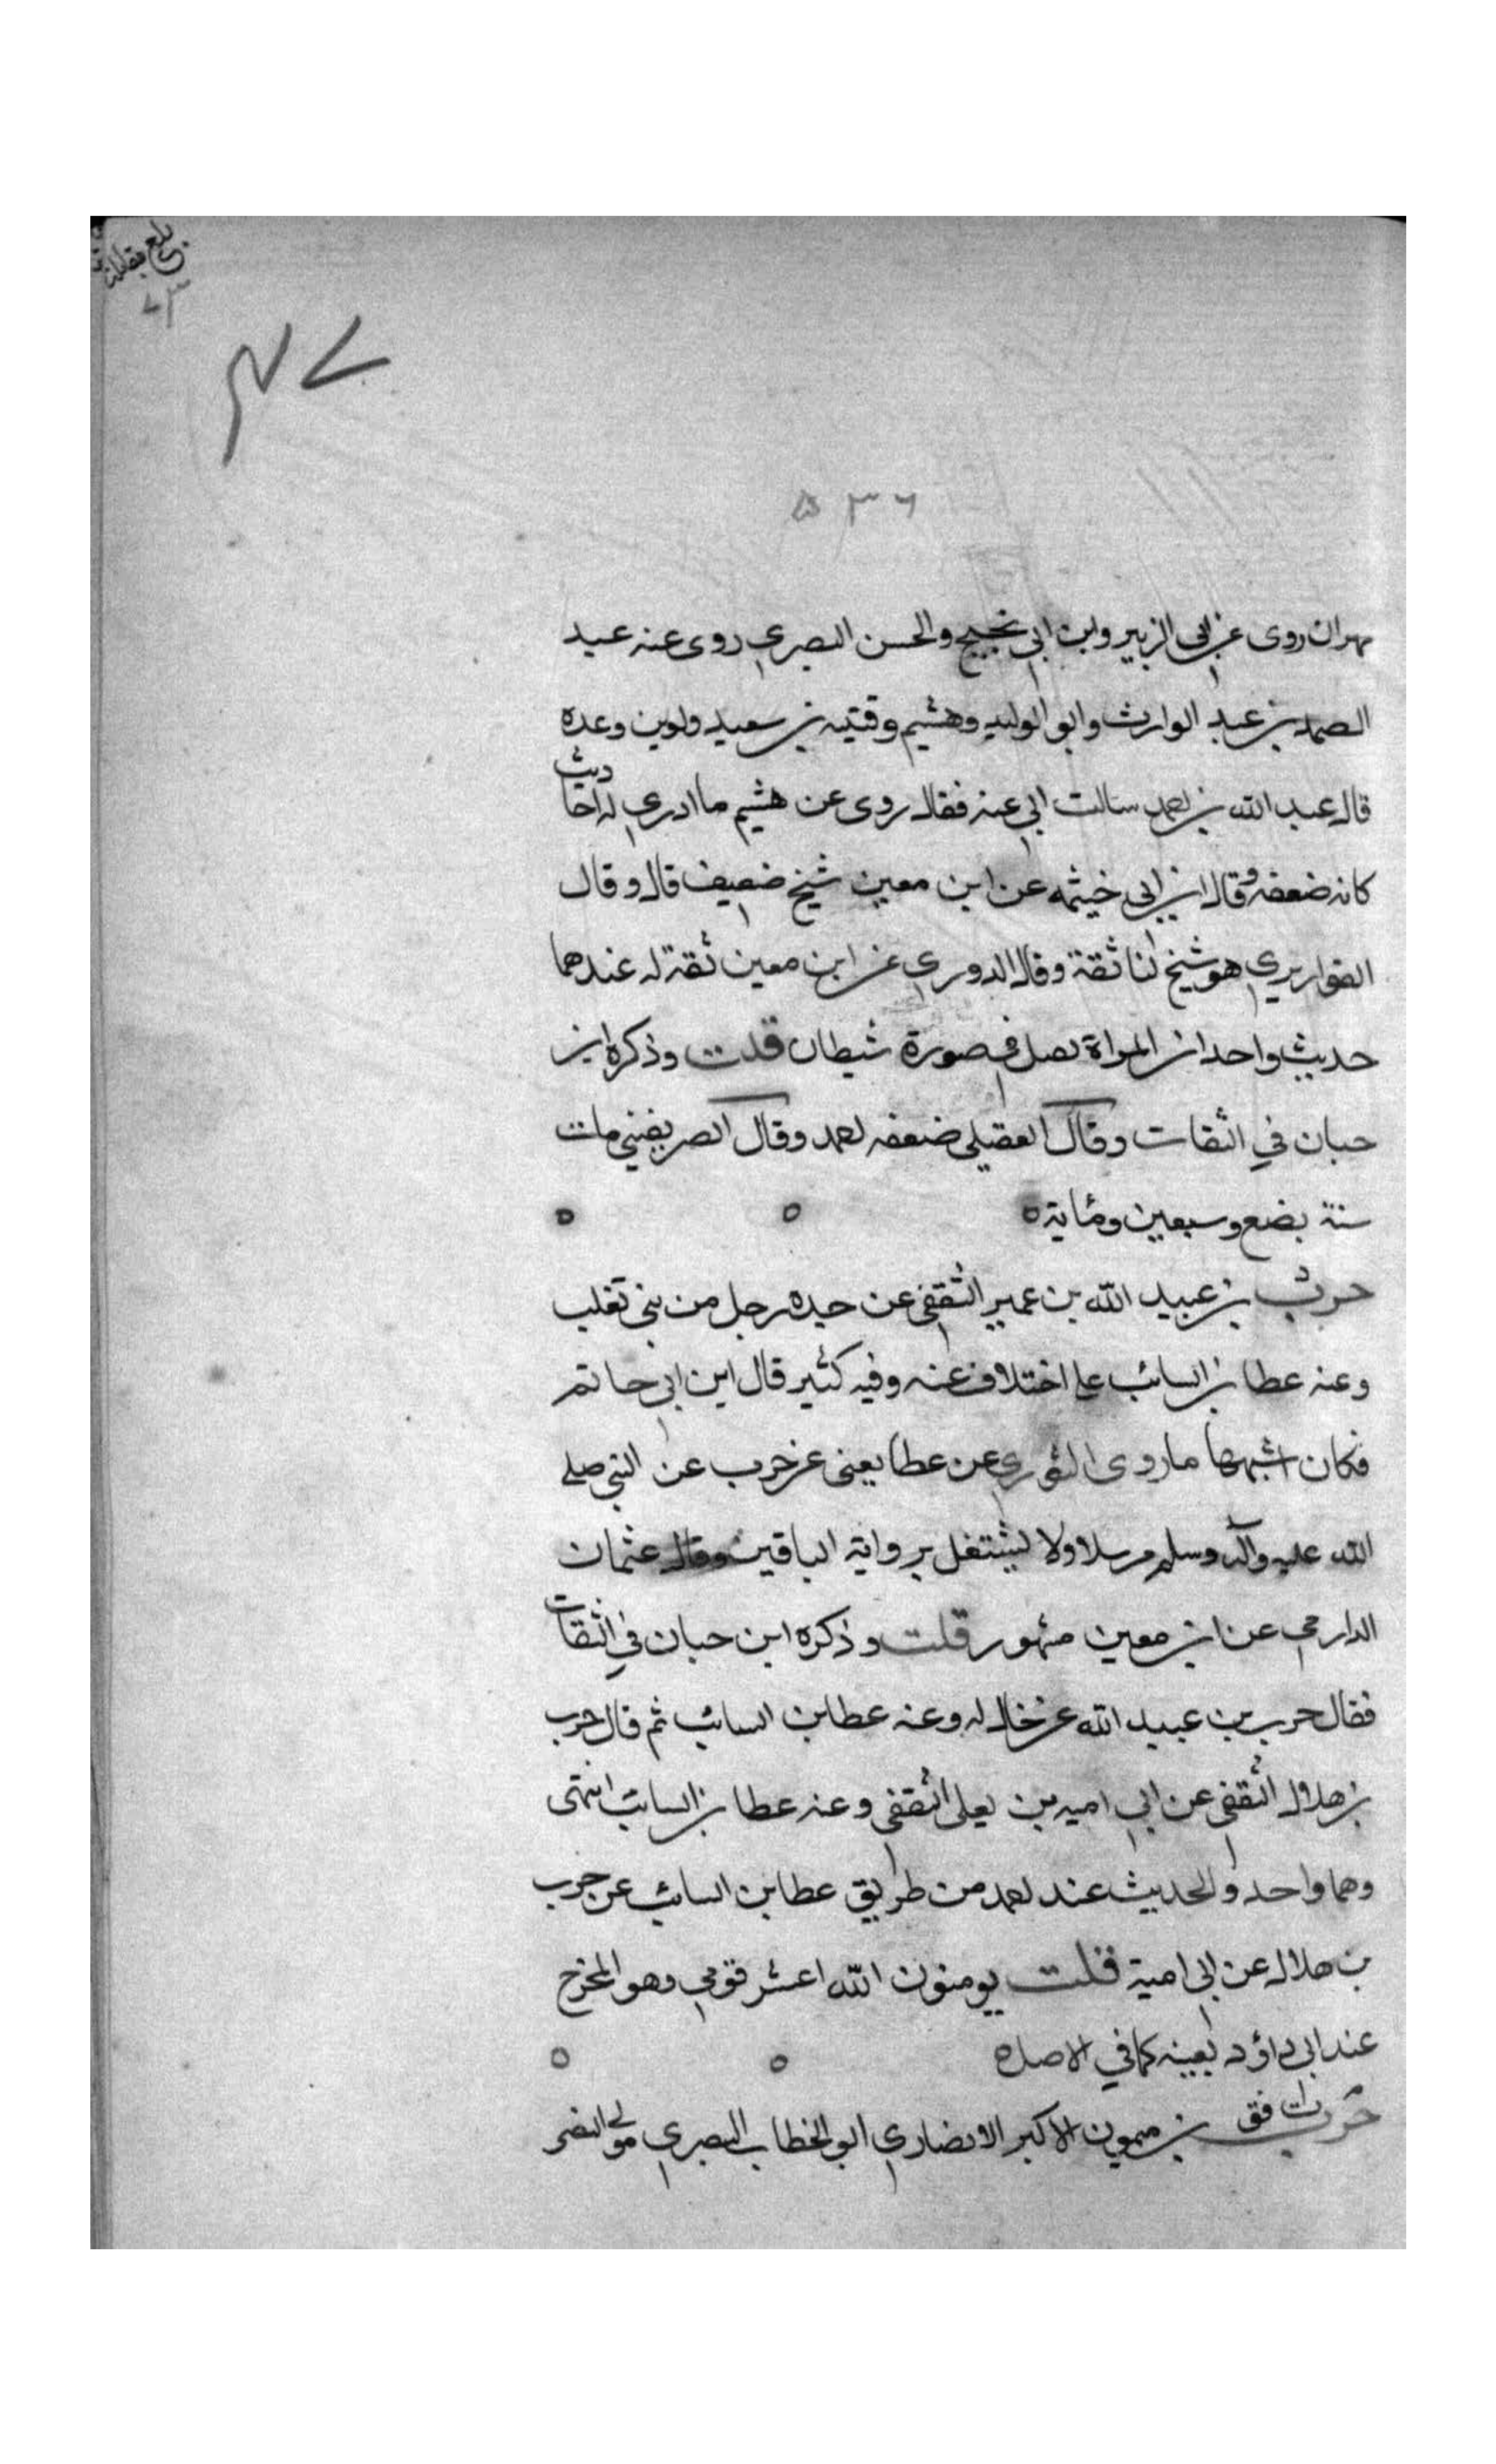 بلغ مقابلة
٧٣
٧٤
٥٣٦
مهران روى عن ابى الزبير وابن ابي نجيح والحسن البصري روى عنه عبد
الصمد بن عبد الوارث وابو الوليد وهشيم وقتيبه بن سعيد ولوين وعده
قال عبد الله بن احمد سالت ابي عنه فقال روى عن هشيم ما ادري له احاديث
كانه ضعفه وقال ابن ابي خيثمه عن ابن معين شيخ ضعيف قال وقال
القواريري هو شيخ لنا ثقة وقال الدوري عن ابن معين ثقة له عندهما
حديث واحد ان المراة تصل في صورة شيطان قلت وذكره ابن
حبان في الثقات وقال العقيلي ضعفه احمد وقال الصريفيني مات
سنة بضع وسبعين ومائة ه
حرب بن عبيد الله بن عمير الثقفي عن جده رجل من بني تغلب
وعنه عطا بن السائب على اختلاف عنه وفيه كثير قال ابن ابي حاتم
فكان اشبهها ما روى الثوري عن عطا يعنى عن حرب عن النبي صلى
الله عليه وآله وسلم مرسلا ولا يشتغل برواية الباقين وقال عثمان
الدارمي عن ابن معين مشهور قلت وذكره ابن حبان في الثقات
فقال حرب بن عبيد الله عن خال له وعنه عطا بن السائب ثم قال حرب
بن هلال الثقفي عن ابي اميه بن يعلى الثقفي وعنه عطا بن السائب انتهى
وهما واحد والحديث عند احمد من طريق عطا بن السائب عن حرب
بن هلال عن ابي امية قلت يومنون الله اعشر قومي وهو المخرج
عند ابي داؤد بعينه كما في الاصل ه
حرب بن ميمون الاكبر الانصاري ابو الخطاب البصري مولى النضر